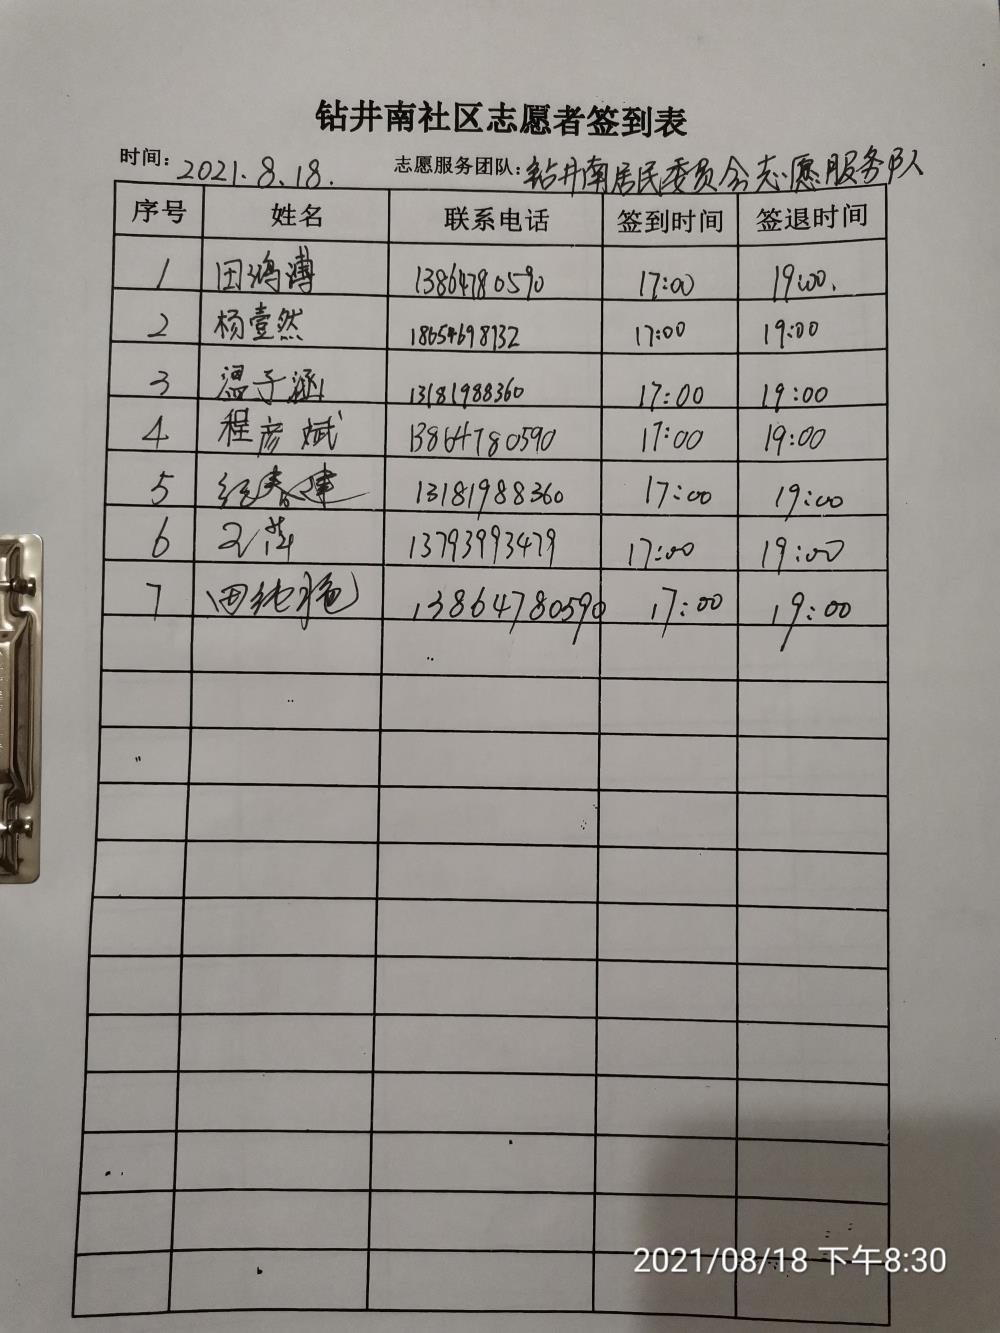 钻井南社区志愿者签到表
时间: 2021.8.18. 志愿服务团队: 钻井南居民委员会志愿服务队
序号 姓名 联系电话 签到时间 签退时间
1 田鸿溥 13864780590 17:00 19:00.
2 杨壹然 18654698732 17:00 19:00
3 温子涵 13181988360 17:00 19:00
4 程彦斌 13864780590 17:00 19:00
5 13181988360 17:00 19:00
6 13793993479 17:00 19:00
7 田纯艳 13864780590 17:00 19:00
2021/08/18 下午8:30